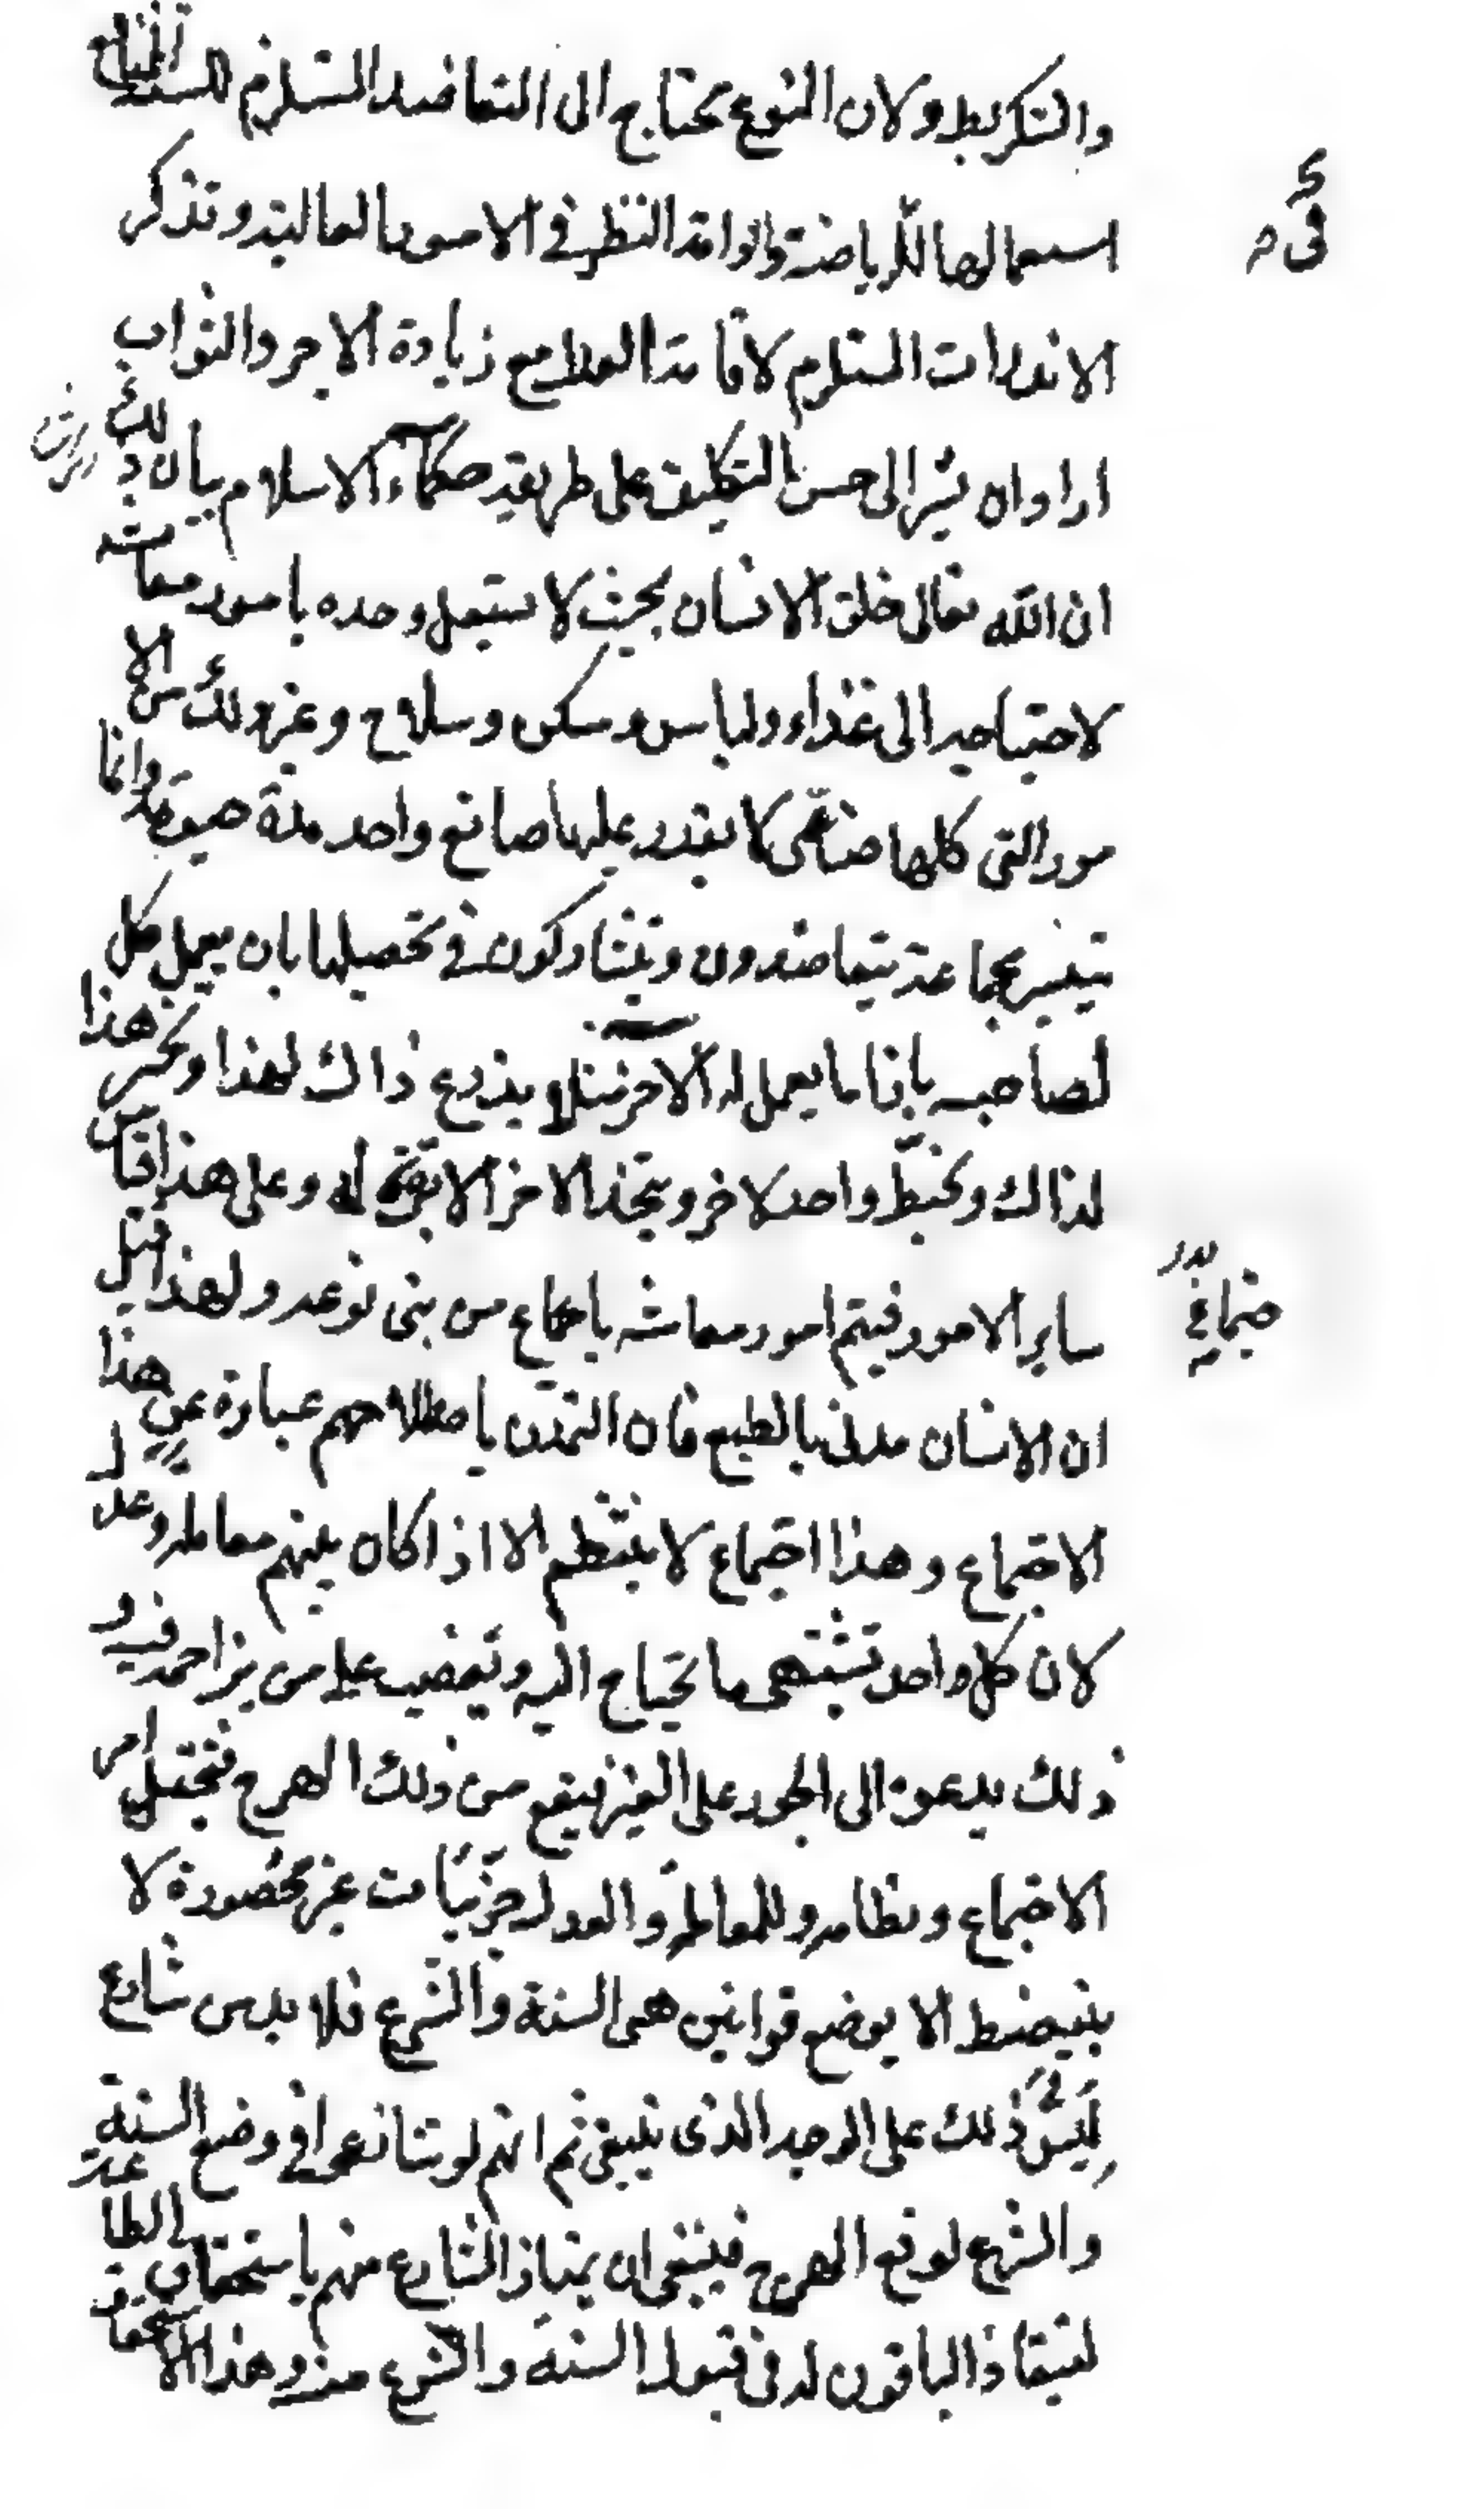 والشكر يط ولان النوع محتاج الى التعاضد المستلزم للسنة النافع
استعمالها للرياضة وادامة النظر في الامور العالية وتذكر
الانذارات المستلزم لاقامة العدل مع زيادة الاجر والثواب
اراد ان يشير الى حسن التكليف على طريقة حكماء الاسلام بيان ذلك
ان الله تعالى خلق الانسان بحيث لا يستقل وحده بامور معاشه
لاحتياجه الى غذاء ولباس ومسكن وسلاح وغير ذلك من الا
مور التي كلها صناعى لا يقدر عليها صانع واحد مدة حيوته وانما
يتيسر بجماعة يتعاضدون ويتشاركون في تحصيلها بان يعمل كل
لصاحبه بازا ما يعمل له الاخر مثلا يزرع ذاك لهذا ويخبز هذا
لذاك ويخيط واحد لاخر ويتخذ الاخر الابرة له وعلى هذا قياس
ساير الامور فيتم امور معاشه باجتماع من بنى نوعه ولهذا قيل
ان الانسان مدنى بالطبع فان التمدن باصطلاحهم عبارة عن هذا
الاجتماع وهذا اجتماع لا ينتظم الا اذا كان بينهم معاملة وعدل
لان كل واحد تشتهى ما يحتاج اليه ويغضب على من يزاحمه فيه و
ذلك يدعوه الى الجور على الغير فيقع من ذلك الهرج فيختل امر
الاجتماع ونظامه وللمعاملة والعدل جزئيات غير محصورة لا
ينضبط الا بوضع قوانين هى السنة والشرع فلا بد من شارع
ليسن ذلك على الوجه الذى ينبغى ثم انهم لو تنازعوا في وضع السنة
والشرع لوقع الهرج فينبغى ان يمتاز الشارع منهم باستحقاق الطاعة
لينقاد الباقون له فى قبول السنة والشرع وهذا الاستحقاق